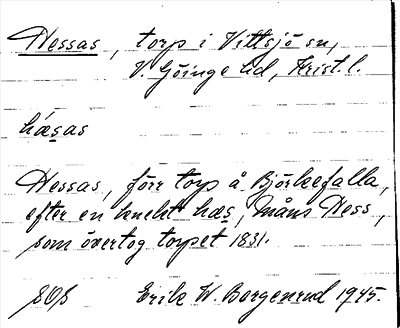 Hessas, torp i Vittsjö sn,
V. Göinge hd, Krist. l.
hæsas
Hessas, förr torp å Björkefalla,
efter en knekt hæs, Måns Hess,
som övertog torpet 1831.
Erik W. Borgenrud 1945.